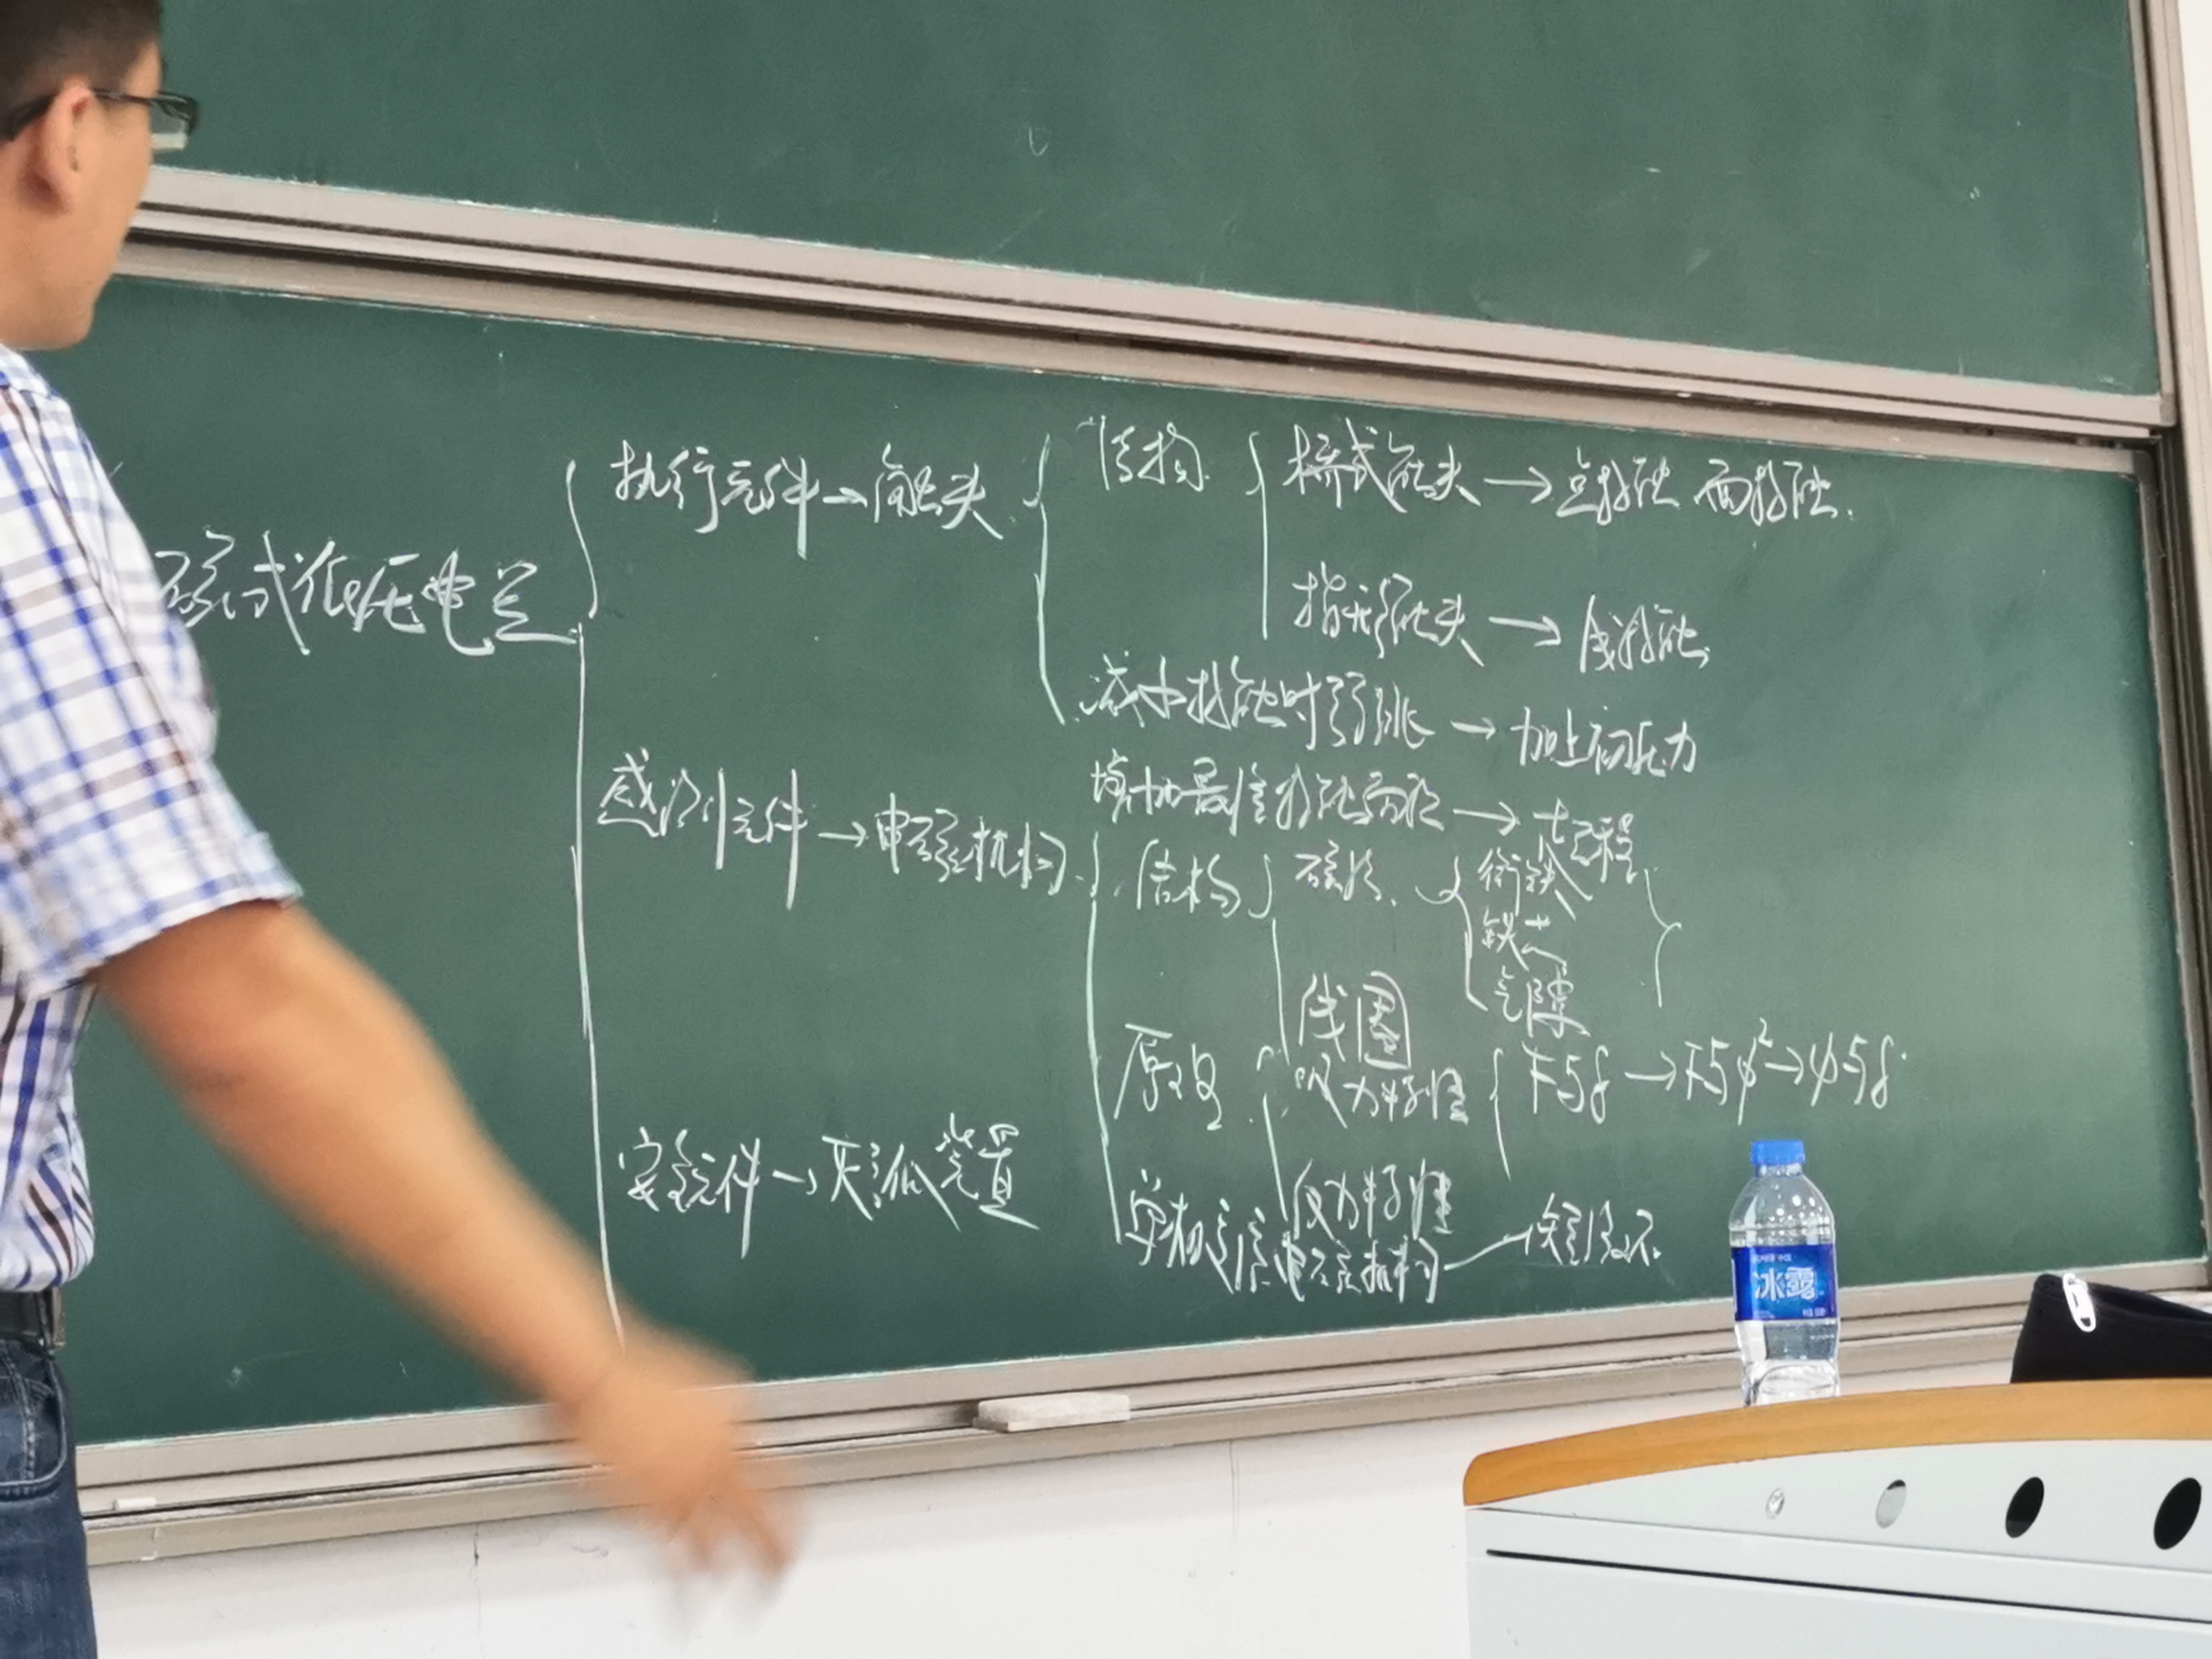 磁式低压电器
执行元件→触头
结构
桥式触头→点接触 面接触.
指形触头→线接触
减小接触时弹跳→加上初压力
增加最终接触面积→超程
感测元件→电磁机构
结构
磁路
衔铁
铁芯
气隙
线圈
原理
吸力特性
F与δ→F与φ²→φ与δ
反力特性
安全元件→灭弧装置
单相交流电磁机构—短路环
冰露